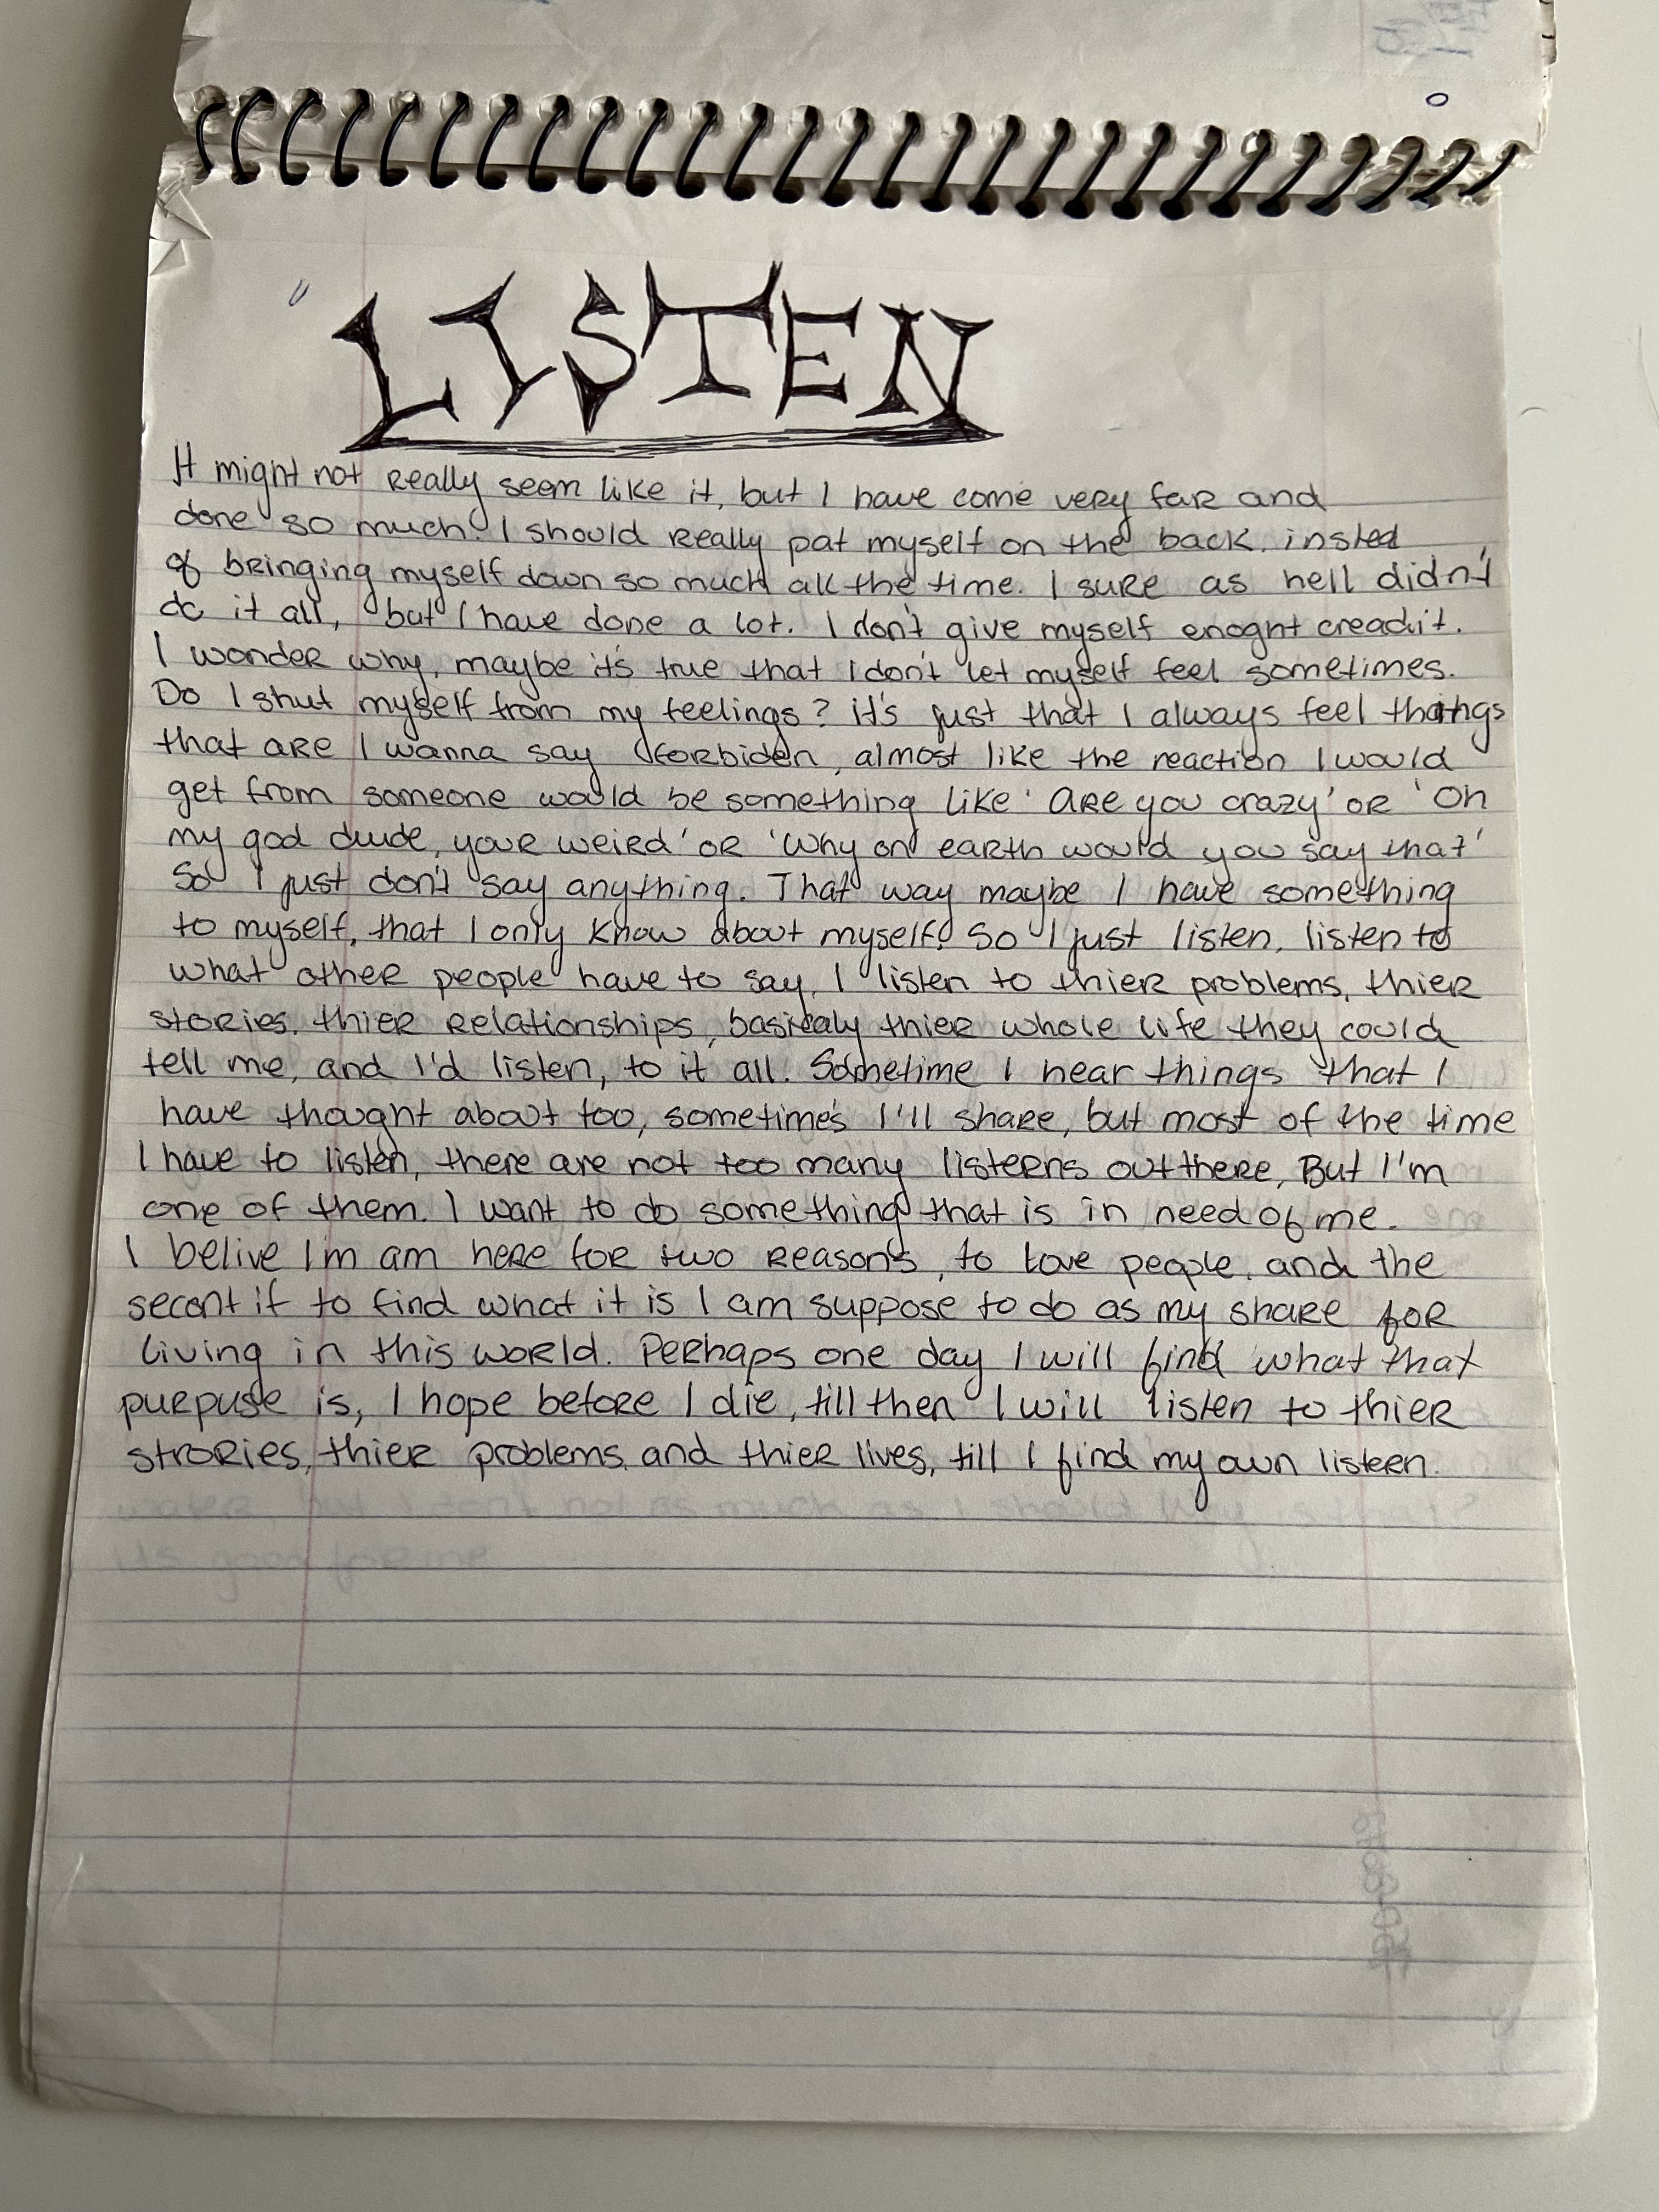 LISTEN
It might not really seem like it, but I have come very far and
done so much. I should really pat myself on the back. insted
of bringing myself down so much all the time. I sure as hell didn't
do it all, but I have done a lot. I don't give myself enoght creadit.
I wonder why, maybe it's true that I don't let myself feel sometimes.
Do I shut myself from my feelings? it's just that I always feel things
that are I wanna say forbiden, almost like the reaction I would
get from someone would be something like 'Are you crazy' or 'Oh
my god dude, your weird' or 'Why on earth would you say that'
So I just don't say anything. That way maybe I have something
to myself, that I only know about myself. So I just listen, listen to
what other people have to say, I listen to thier problems, thier
stories, thier relationships, basicaly thier whole life they could
tell me, and I'd listen, to it all. Sometime I hear things that I
have thought about too, sometimes I'll share, but most of the time
I have to listen, there are not too many listerns out there, But I'm
one of them. I want to do something that is in need of me.
I belive I'm am here for two reasons, to love people, and the
secont if to find what it is I am suppose to do as my share for
living in this world. Perhaps one day I will find what that
purpuse is, I hope before I die, till then I will listen to thier
strories, thier problems, and thier lives, till I find my own listern.